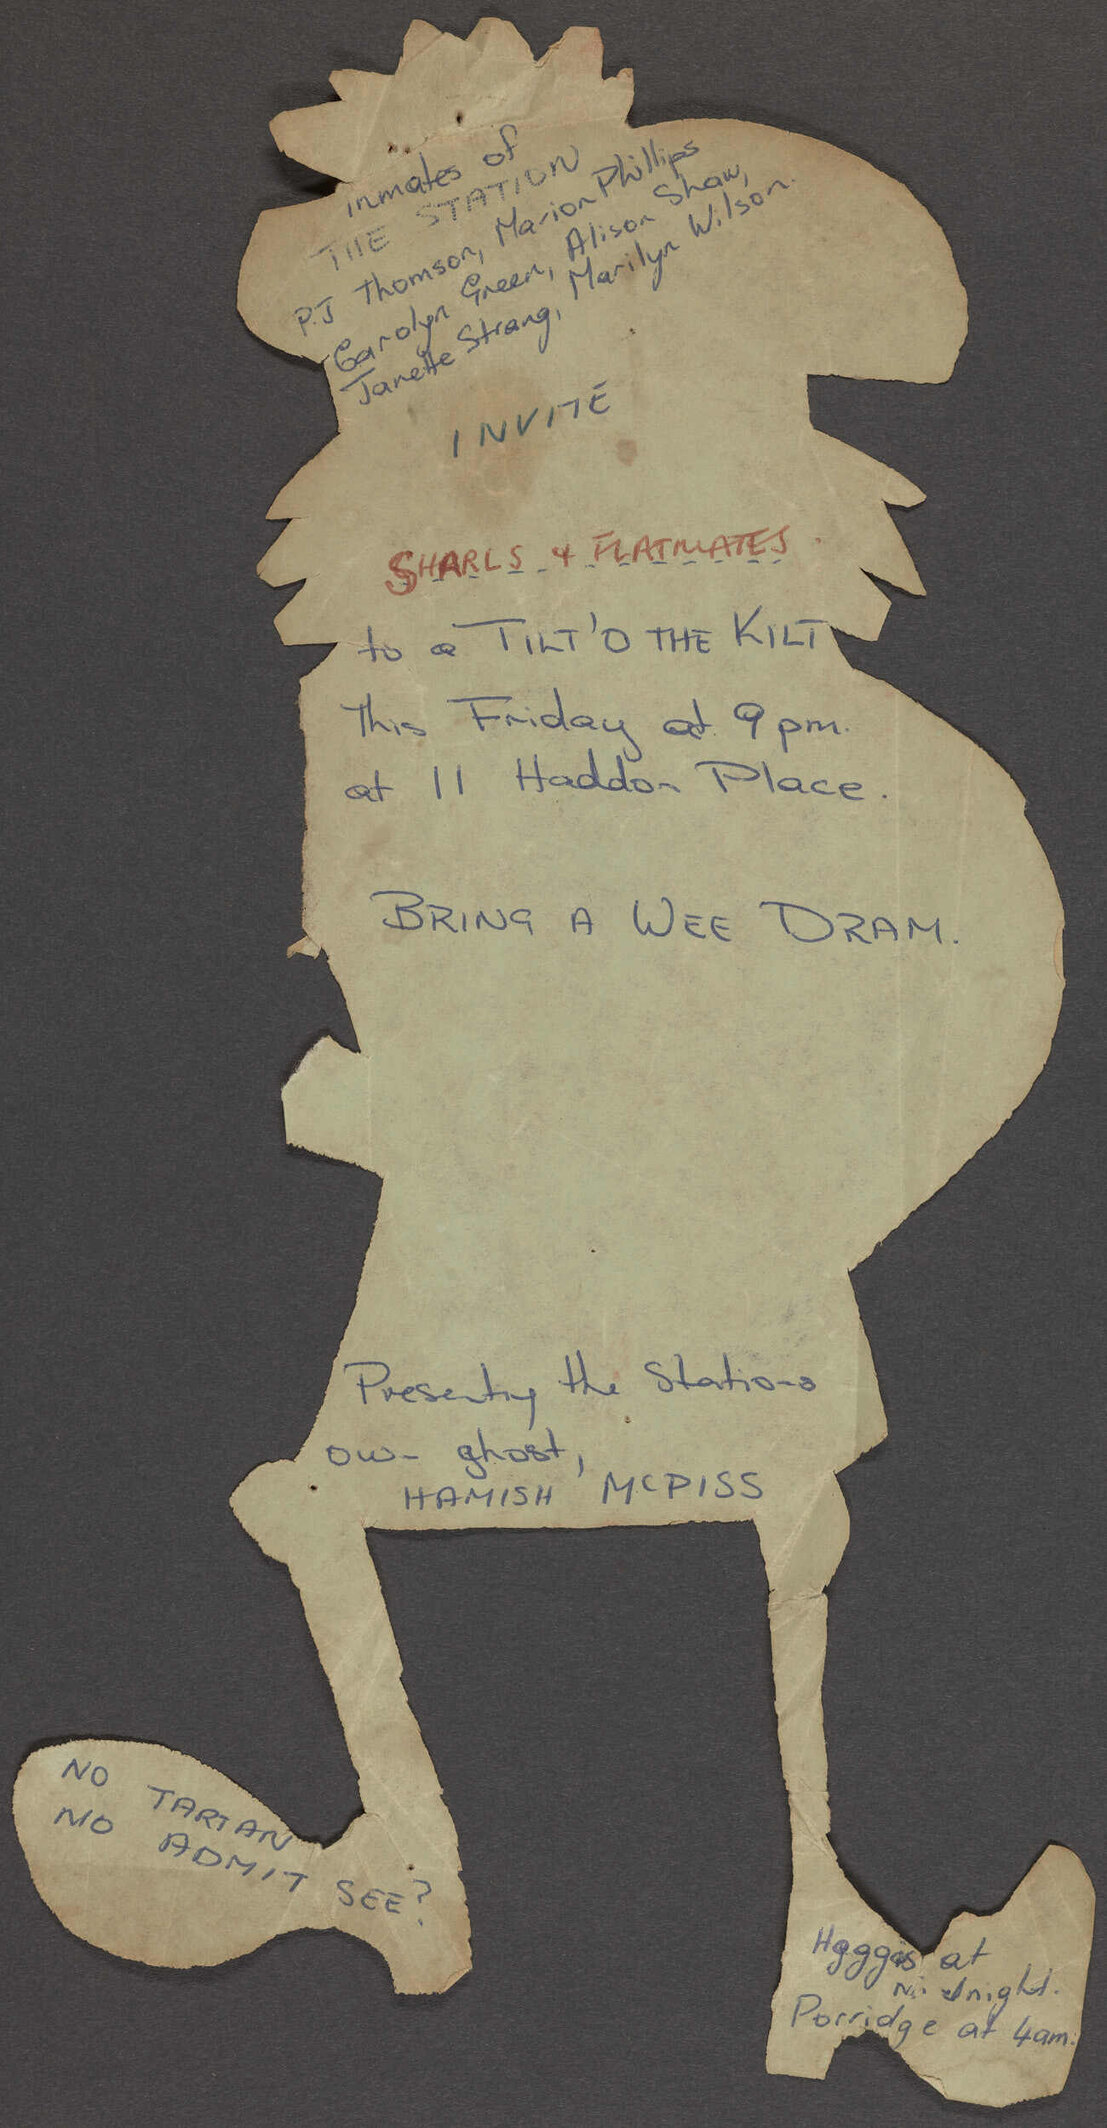 inmates of
THE STATION
P.J Thomson, Marion Phillips
Carolyn Green, Alison Shaw,
Janette Strang, Marilyn Wilson.
INVITE
SHARLS & FLATMATES.
to a TILT'O THE KILT
This Friday at 9pm.
at 11 Haddon Place.
BRING A WEE DRAM.
Presenting the Stations
own ghost,
HAMISH McPISS
NO TARTAN
NO ADMIT SEE?
Haggis at
Midnight.
Porridge at 4am.